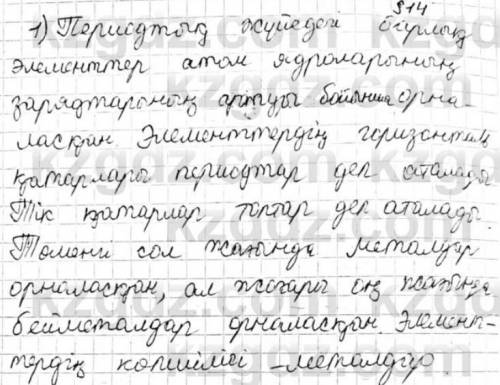 §14
1) Периодтық жүйедегі барлық
элементтер атом ядроларының
зарядтарының артуы бойынша орна-
ласқан. Элементтердің горизонталь
қатарлары периодтар деп аталады
Тік қатарлар топтар деп аталады.
Төменгі сол жағында металдар
орналасқан, ал жоғары оң жағында
бейметалдар орналасқан. Элемент-
тердің көпшілігі - металдар.